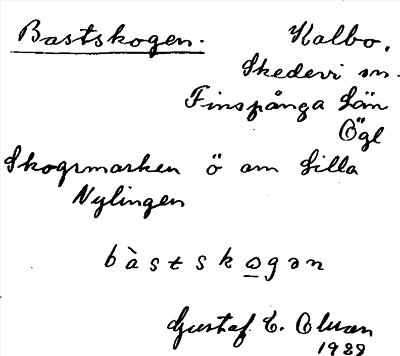 Bastskogen.
Kalbo,
Skedevi sn.
Finspånga Län
Ögl
Skogsmarken ö om Lilla
Nylingen
bàstskogən
Gustaf E. Olsson
1928